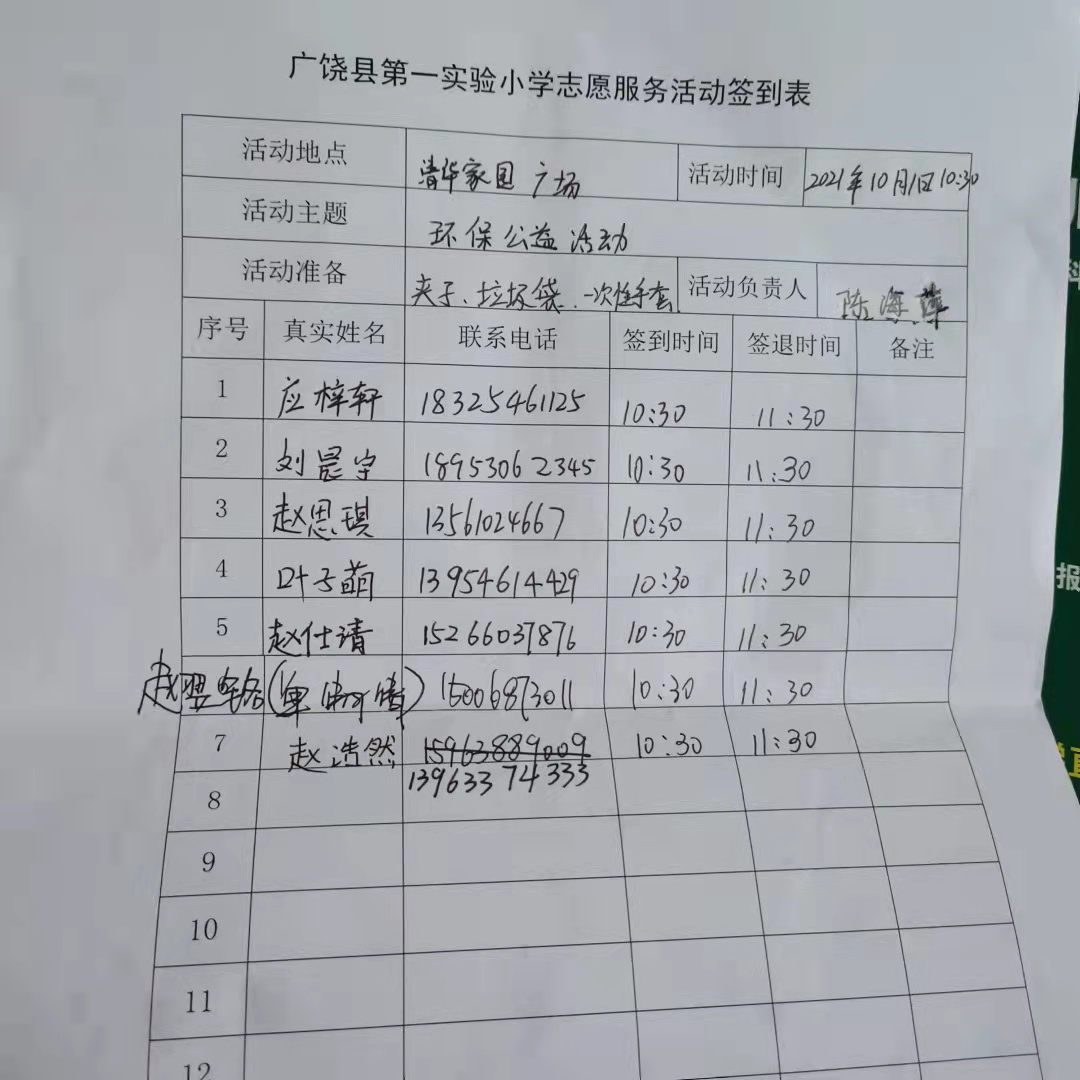 广饶县第一实验小学志愿服务活动签到表
活动地点 清华家园广场 活动时间 2021年10月1日10:30
活动主题 环保公益活动
活动准备 夹子、垃圾袋、一次性手套 活动负责人 陈海萍
序号 真实姓名 联系电话 签到时间 签退时间 备注
1 应梓轩 18325461125 10:30 11:30
2 刘晨宇 18953062345 10:30 11:30
3 赵思琪 13561024667 10:30 11:30
4 叶子萌 13954614429 10:30 11:30
5 赵仕请 15266037876 10:30 11:30
赵 15006873011 10:30 11:30
7 赵浩然 15963889009 10:30 11:30
13963374333
8
9
10
11
12
报